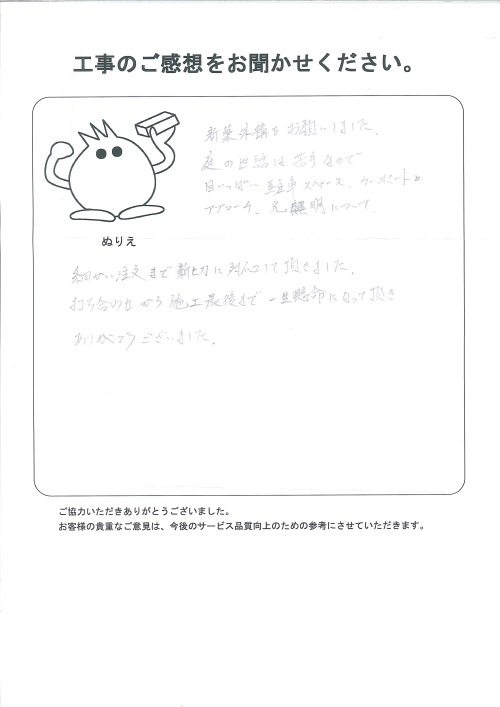 工事のご感想をお聞かせください。
新築外構をお願いしました。
庭の世話は苦手なので
目いっぱい駐車スペース、カーポートと
アプローチ、光 照明について
ぬりえ
細かい注文まで親切に対応して頂きました。
打ち合わせから施工最後まで一生懸命になって頂き
ありがとうございました。
ご協力いただきありがとうございました。
お客様の貴重なご意見は、今後のサービス品質向上のための参考にさせていただきます。